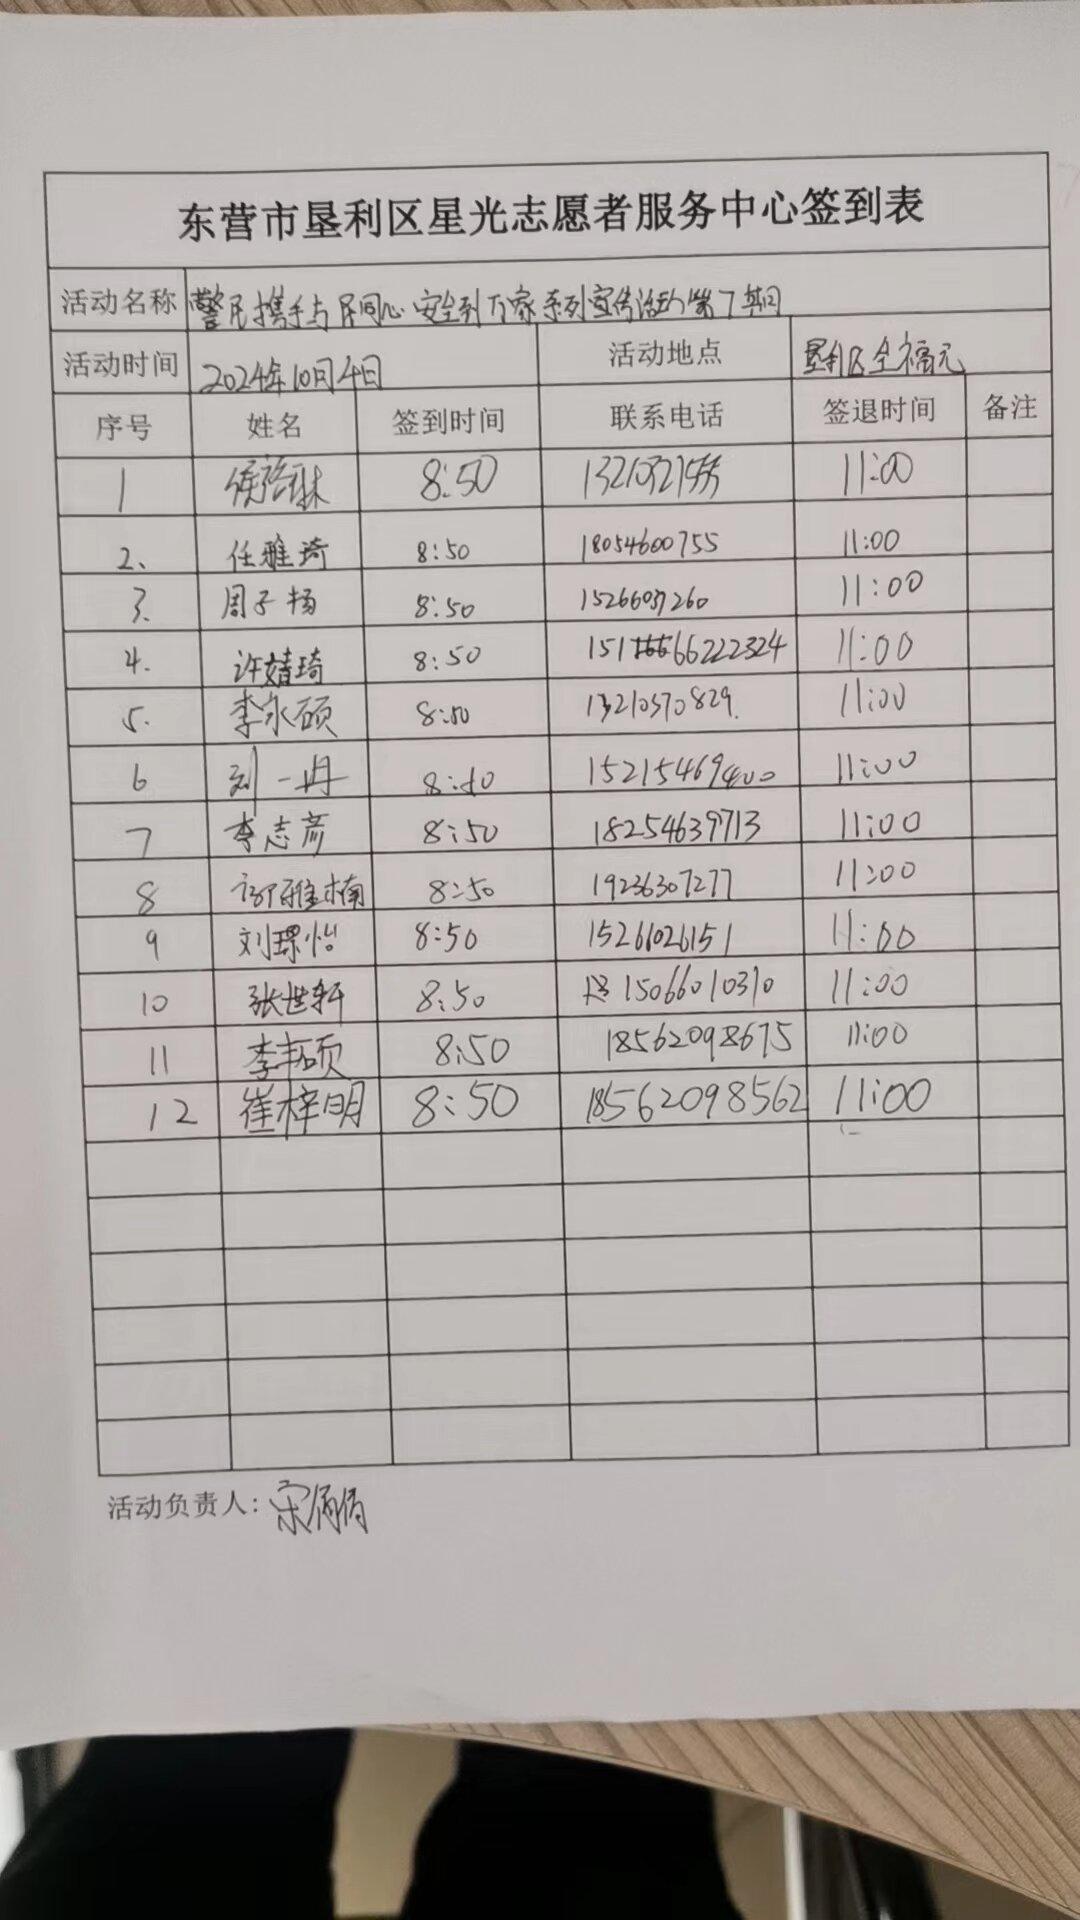 东营市垦利区星光志愿者服务中心签到表
活动名称 警民携手与民同心安全到万家系列宣传活动第7期
活动时间 2024年10月4日 活动地点 垦利区全福元
序号 姓名 签到时间 联系电话 签退时间 备注
1 8:50 11:00
2、 任雅琦 8:50 18054600755 11:00
3. 周子扬 8:50 15266037260 11:00
4. 许婧琦 8:50 151 66222324 11:00
5. 李永硕 8:50 13210370829. 11:00
6 刘一冉 8:50 15215469400 11:00
7 李志彦 8:50 18254639713 11:00
8 邵雅楠 8:50 19236307277 11:00
9 刘璟怡 8:50 15266026151 11:00
10 张世轩 8:50 15066010310 11:00
11 李丰硕 8:50 18562098675 11:00
12 崔梓明 8:50 18562098562 11:00
活动负责人：宋